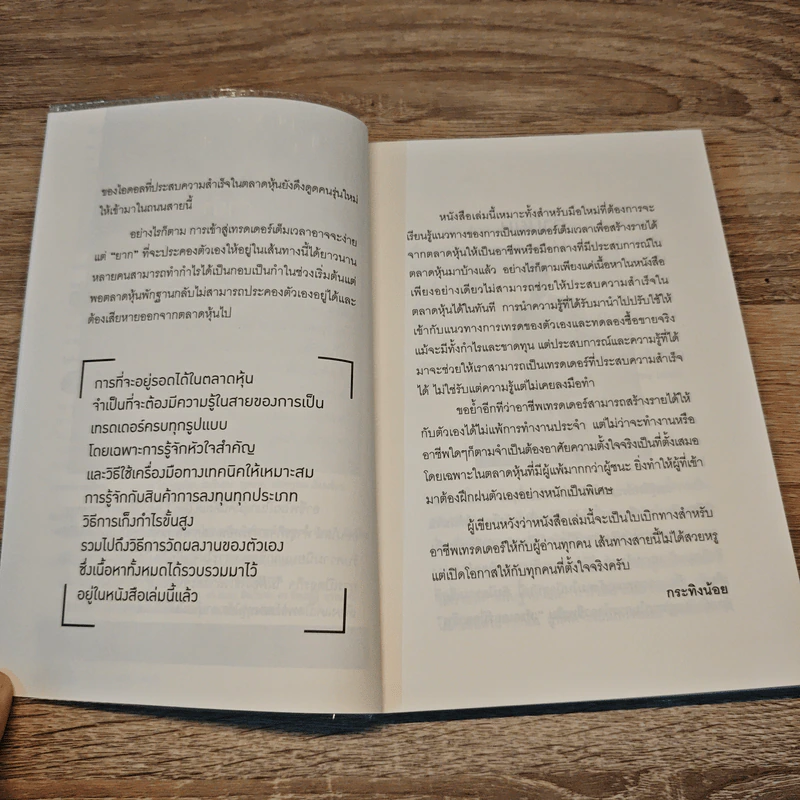 ของไอดอลที่ประสบความสำเร็จในตลาดหุ้นยังดึงดูดคนรุ่นใหม่
ให้เข้ามาในถนนสายนี้
อย่างไรก็ตาม การเข้าสู่เทรดเดอร์เต็มเวลาอาจจะง่าย
แต่ “ยาก” ที่จะประคองตัวเองให้อยู่ในเส้นทางนี้ได้ยาวนาน
หลายคนสามารถทำกำไรได้เป็นกอบเป็นกำในช่วงเริ่มต้นแต่
พอตลาดหุ้นพักฐานกลับไม่สามารถประคองตัวเองอยู่ได้และ
ต้องเสียหายออกจากตลาดหุ้นไป
การที่จะอยู่รอดได้ในตลาดหุ้น
จำเป็นที่จะต้องมีความรู้ในสายของการเป็น
เทรดเดอร์ครบทุกรูปแบบ
โดยเฉพาะการรู้จักหัวใจสำคัญ
และวิธีใช้เครื่องมือทางเทคนิคให้เหมาะสม
การรู้จักกับสินค้าการลงทุนทุกประเภท
วิธีการเก็งกำไรขั้นสูง
รวมไปถึงวิธีการวัดผลงานของตัวเอง
ซึ่งเนื้อหาทั้งหมดได้รวบรวมมาไว้
อยู่ในหนังสือเล่มนี้แล้ว
หนังสือเล่มนี้เหมาะทั้งสำหรับมือใหม่ที่ต้องการจะ
เรียนรู้แนวทางของการเป็นเทรดเดอร์เต็มเวลาเพื่อสร้างรายได้
จากตลาดหุ้นให้เป็นอาชีพหรือมือกลางที่มีประสบการณ์ใน
ตลาดหุ้นมาบ้างแล้ว อย่างไรก็ตามเพียงแค่เนื้อหาในหนังสือ
เพียงอย่างเดียวไม่สามารถช่วยให้ประสบความสำเร็จใน
ตลาดหุ้นได้ในทันที การนำความรู้ที่ได้รับมานำไปปรับใช้ให้
เข้ากับแนวทางการเทรดของตัวเองและทดลองซื้อขายจริง
แม้จะมีทั้งกำไรและขาดทุน แต่ประสบการณ์และความรู้ที่ได้
มาจะช่วยให้เราสามารถเป็นเทรดเดอร์ที่ประสบความสำเร็จ
ได้ ไม่ใช่รับแต่ความรู้แต่ไม่เคยลงมือทำ
ขอย้ำอีกทีว่าอาชีพเทรดเดอร์สามารถสร้างรายได้ให้
กับตัวเองได้ไม่แพ้การทำงานประจำ แต่ไม่ว่าจะทำงานหรือ
อาชีพใดๆก็ตามจำเป็นต้องอาศัยความตั้งใจจริงเป็นที่ตั้งเสมอ
โดยเฉพาะในตลาดหุ้นที่มีผู้แพ้มากกว่าผู้ชนะ ยิ่งทำให้ผู้ที่เข้า
มาต้องฝึกฝนตัวเองอย่างหนักเป็นพิเศษ
ผู้เขียนหวังว่าหนังสือเล่มนี้จะเป็นใบเบิกทางสำหรับ
อาชีพเทรดเดอร์ให้กับผู้อ่านทุกคน เส้นทางสายนี้ไม่ได้สวยหรู
แต่เปิดโอกาสให้กับทุกคนที่ตั้งใจจริงครับ
กระทิงน้อย